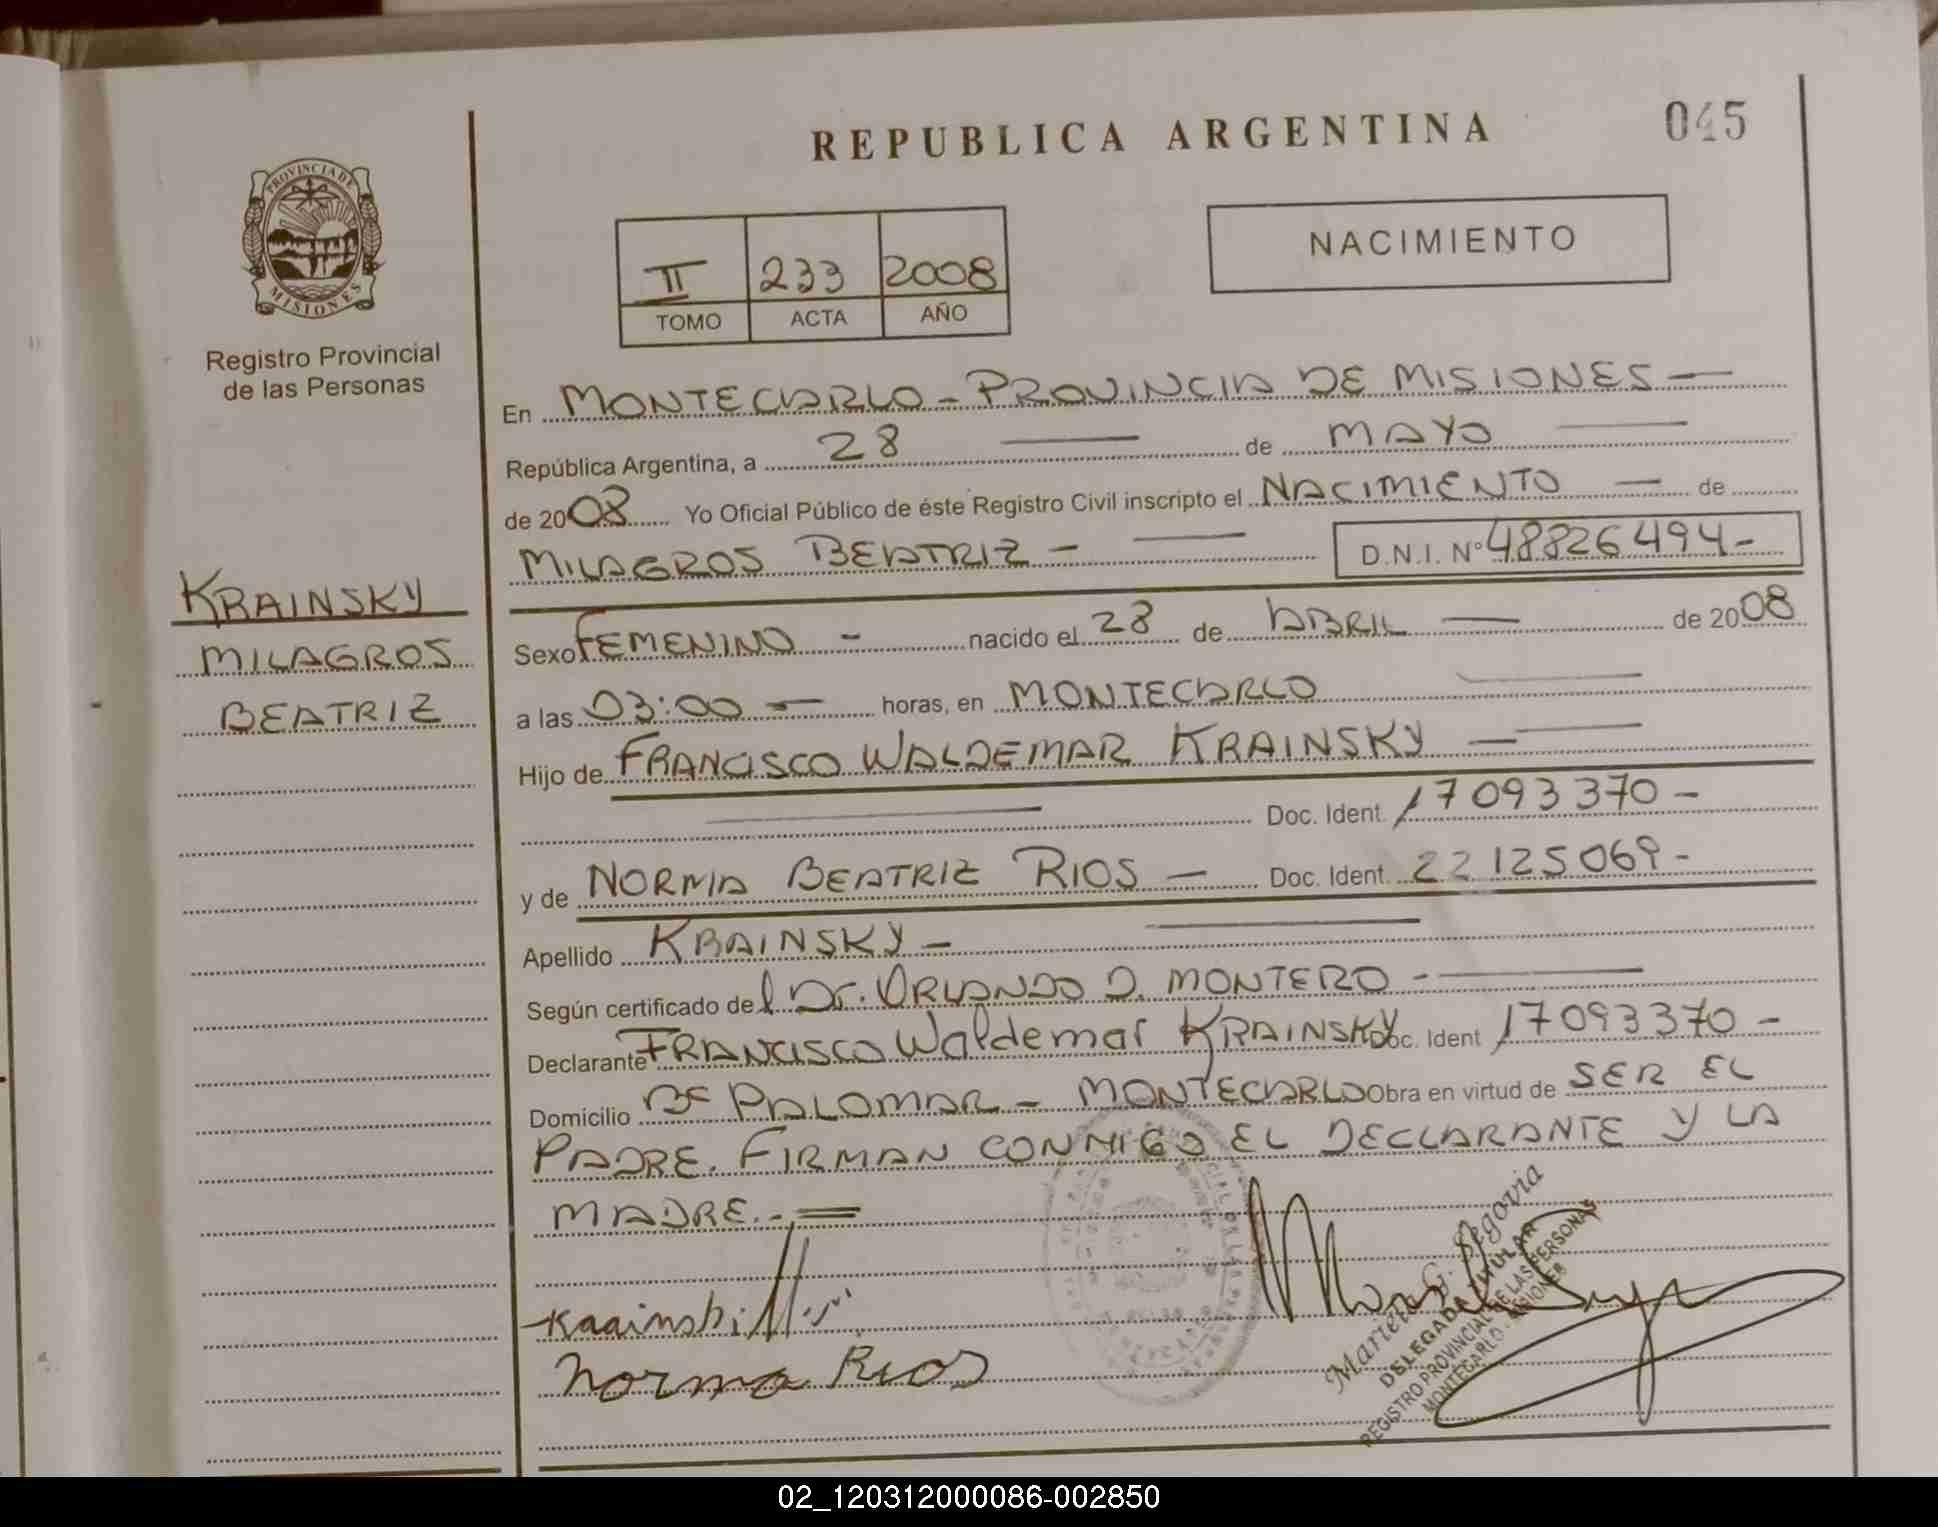 REPUBLICA ARGENTINA
045
PROVINCIA DE
MISIONES
Registro Provincial
de las Personas
II 233 2008
TOMO ACTA AÑO
NACIMIENTO
En MONTECARLO - PROVINCIA DE MISIONES —
República Argentina, a 28 — de MAYO —
de 2008 Yo Oficial Público de éste Registro Civil inscripto el NACIMIENTO — de
MILAGROS BEATRIZ - — D.N.I. Nº 48826494-
KRAINSKY
MILAGROS
BEATRIZ
Sexo FEMENINO - nacido el 28 de ABRIL — de 2008
a las 03:00 — horas, en MONTECARLO —
Hijo de FRANCISCO WALDEMAR KRAINSKY —
Doc. Ident. 17093370 -
y de NORMA BEATRIZ RIOS — Doc. Ident. 22125069 -
Apellido KRAINSKY —
Según certificado del Dr. ORLANDO D. MONTERO - —
Declarante FRANCISCO Waldemar KRAINSKY Doc. Ident 17093370 -
Domicilio Bº PALOMAR - MONTECARLO Obra en virtud de SER EL
PADRE. FIRMAN CONMIGO EL DECLARANTE Y LA
MADRE.-=
Norma Rios
Mariela G. Segovia
DELEGADA TITULAR
REGISTRO PROVINCIAL DE LAS PERSONAS
MONTECARLO - MISIONES
02_120312000086-002850